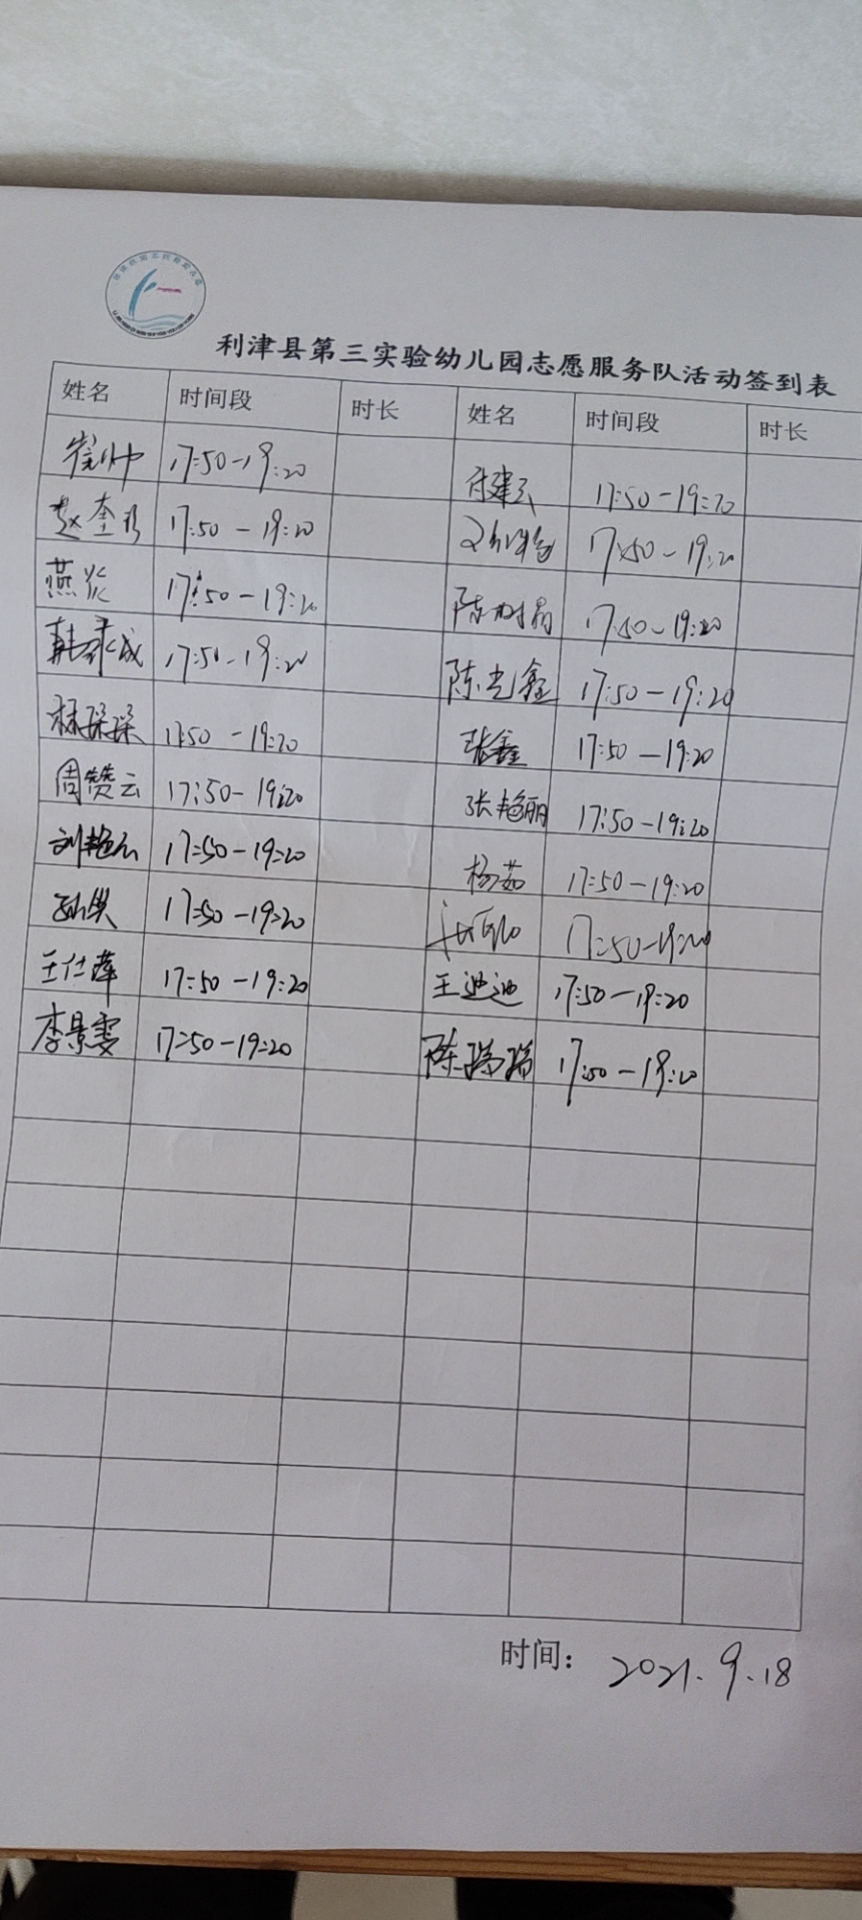 利津县第三实验幼儿园志愿服务队活动签到表
姓名 时间段 时长 姓名 时间段 时长
崔帅 17:50-19:20 17:50-19:20
赵奎 17:50-19:20 17:50-19:20
燕 17:50-19:20 陈 17:50-19:20
韩 成 17:50-19:20 陈光鑫 17:50-19:20
林琛琛 17:50-19:20 张鑫 17:50-19:20
周赞云 17:50-19:20 张艳丽 17:50-19:20
刘艳 17:50-19:20 杨茹 17:50-19:20
17:50-19:20 17:50-19:20
王仕萍 17:50-19:20 王迪迪 17:50-19:20
李景雯 17:50-19:20 陈瑞瑞 17:50-19:20
时间: 2021.9.18